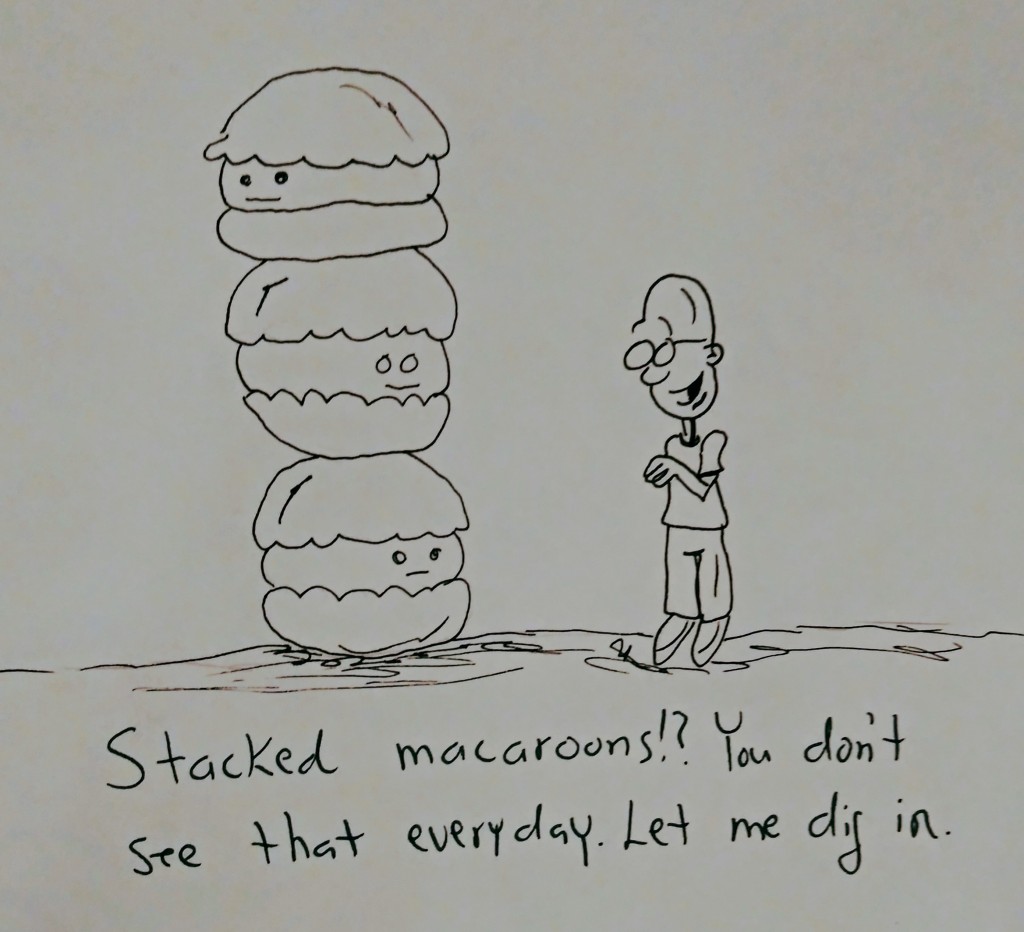 Stacked macaroons!? You don't
see that everyday. Let me dig in.